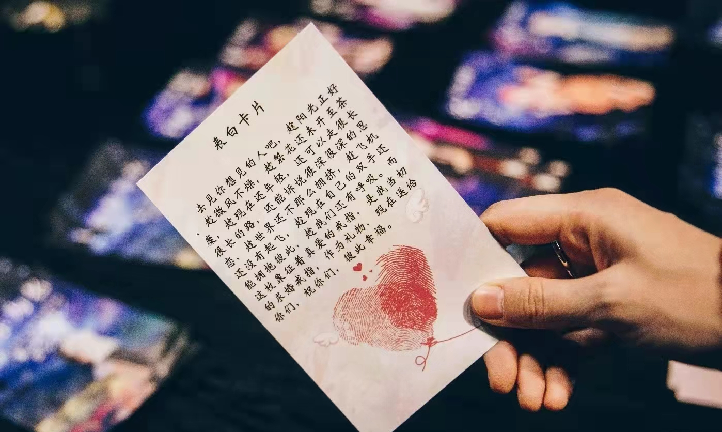 表白卡片
去见你想见的人吧，趁阳光正好
，趁微风不燥，趁繁花还未开至荼
靡，趁现在还年轻，还可以走很长
很长的路，还能诉说很深很深的思
恋，趁世界还不那么拥挤，趁飞机
还没有起飞，趁现在自己的双手还
能拥抱彼此，趁我们还有呼吸。而
这枚象征着真爱的戒指，是我当初
的求婚戒指，作为礼物，现在送给
你们，祝你们，彼此幸福。